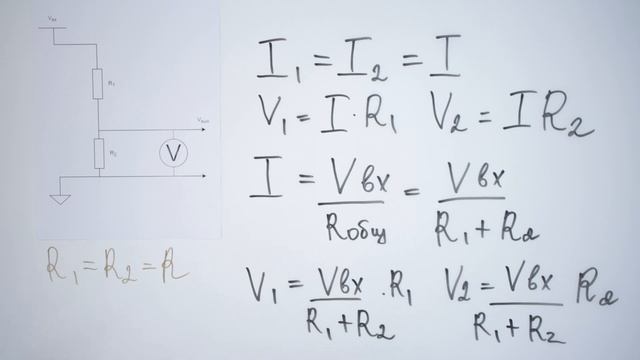 Vвх
R₁
Vвых
R₂
V
R₁ = R₂ = R
I₁ = I₂ = I
V₁ = I · R₁ V₂ = I R₂
I = Vвх / Rобщ = Vвх / R₁ + R₂
V₁ = Vвх / R₁ + R₂ · R₁ V₂ = Vвх / R₁ + R₂ R₂